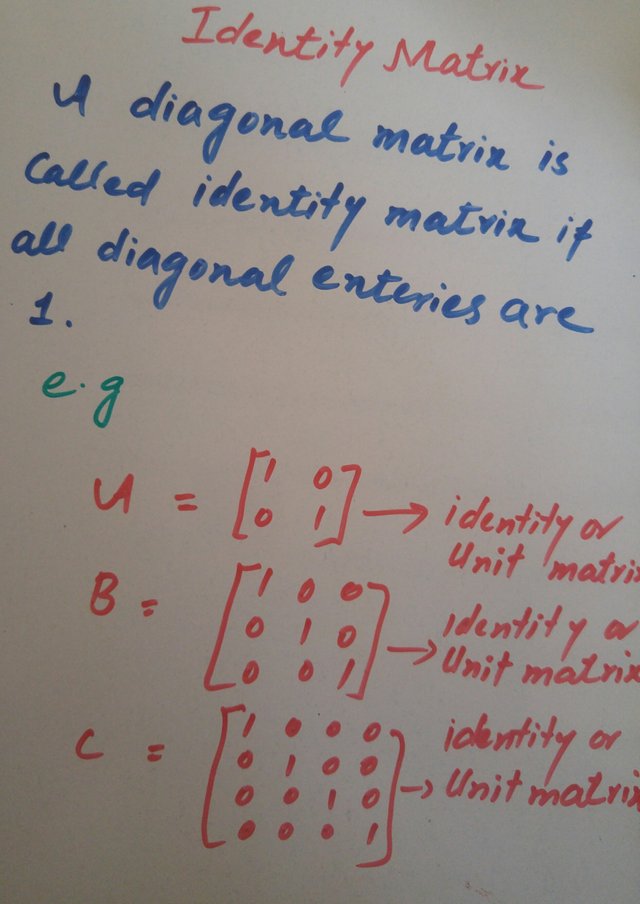 Identity Matrix
A diagonal matrix is
called identity matrix if
all diagonal enteries are
1.
e.g
A = [1 0
0 1] → identity or
Unit matrix
B = [1 0 0
0 1 0
0 0 1] → Identity or
Unit matrix
C = [1 0 0 0
0 1 0 0
0 0 1 0
0 0 0 1] → identity or
Unit matrix